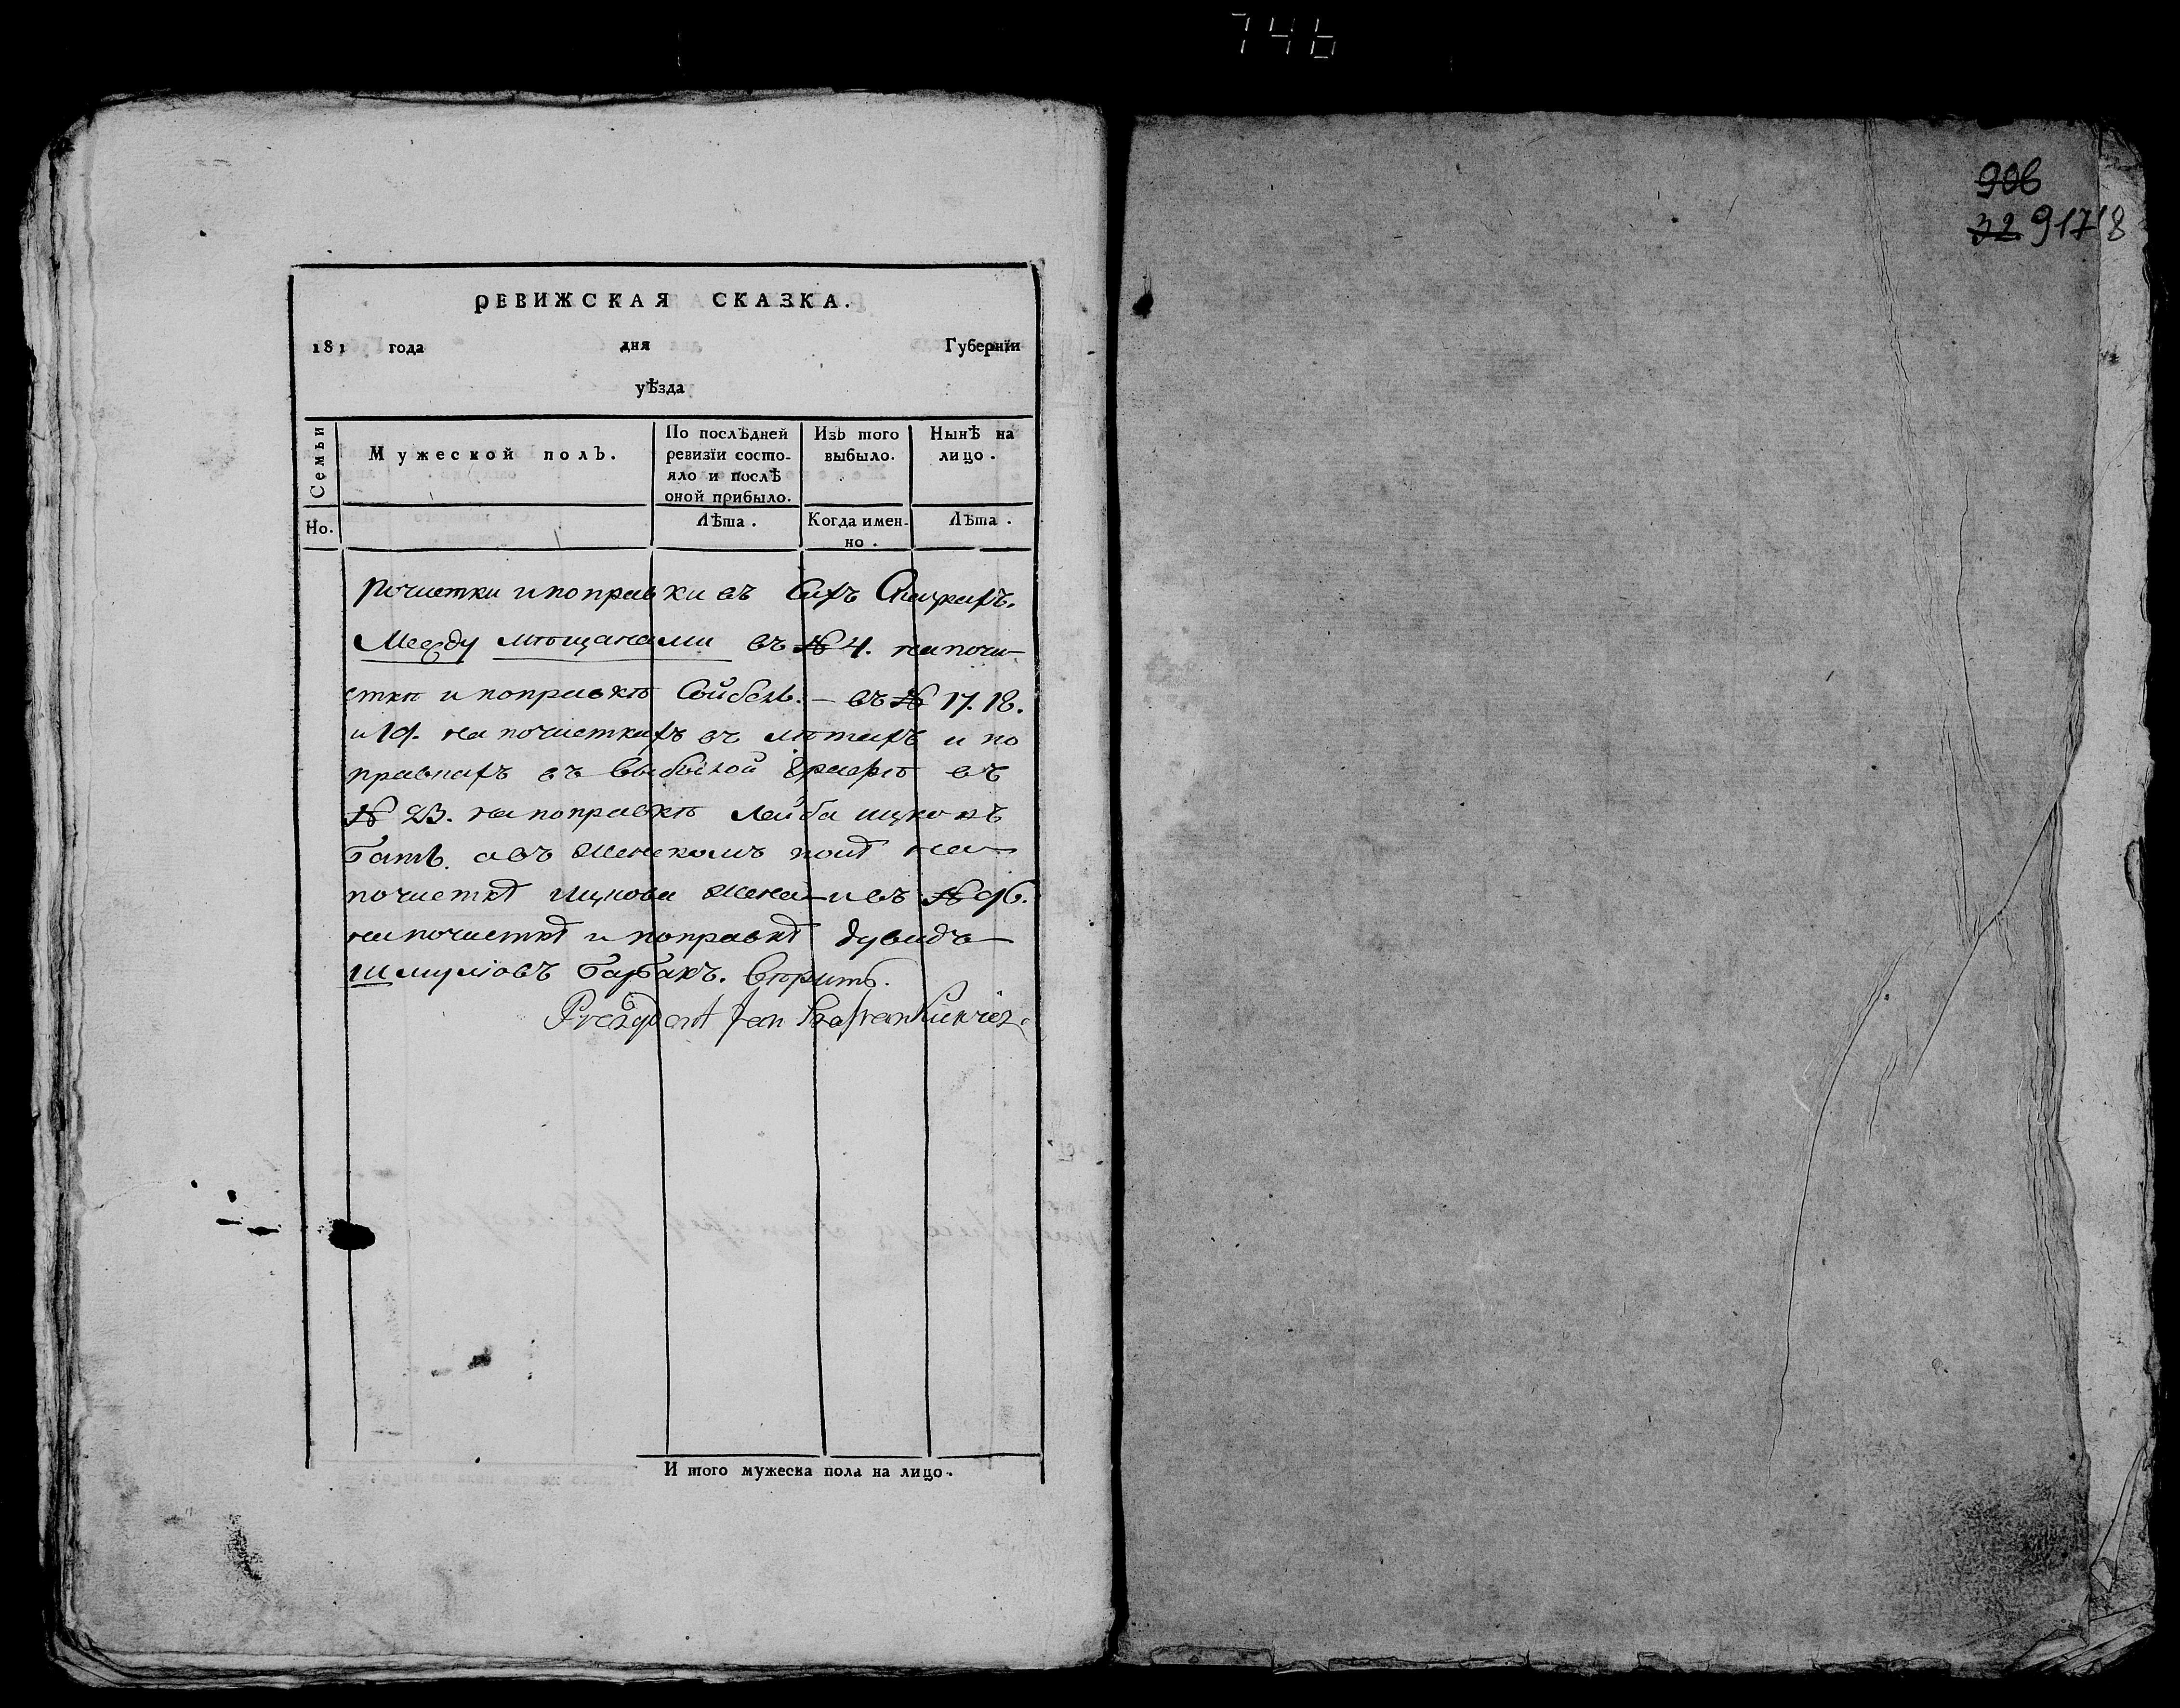 746
906
32 917 18
РЕВИЖСКАЯ СКАЗКА.
181 года дня Губернїи
уѣзда
Семьи
Мужеской полъ.
По послѣдней ревизїи состояло и послѣ оной прибыло.
Изъ того выбыло.
Нынѣ на лицо.
Но.
Лѣта.
Когда именно.
Лѣта.
Почистки и поправки въ сихъ Скаскахъ.
Между мѣщанами въ № 4. на почи-
сткѣ и поправкѣ Сойбель. — въ № 17. 18.
и 19. на почисткахъ въ лѣтахъ и по
правкахъ въ выбылой графѣ въ
№ 23. на поправкѣ Лейба Ицковъ
Батъ. а въ женскомъ полѣ на
почисткѣ Ицкова жена и въ № 96.
на почисткѣ и поправкѣ Дувидъ
Шмуловъ Барбакъ. вѣрить.
Prezydent Jan
И того мужеска пола на лицо.